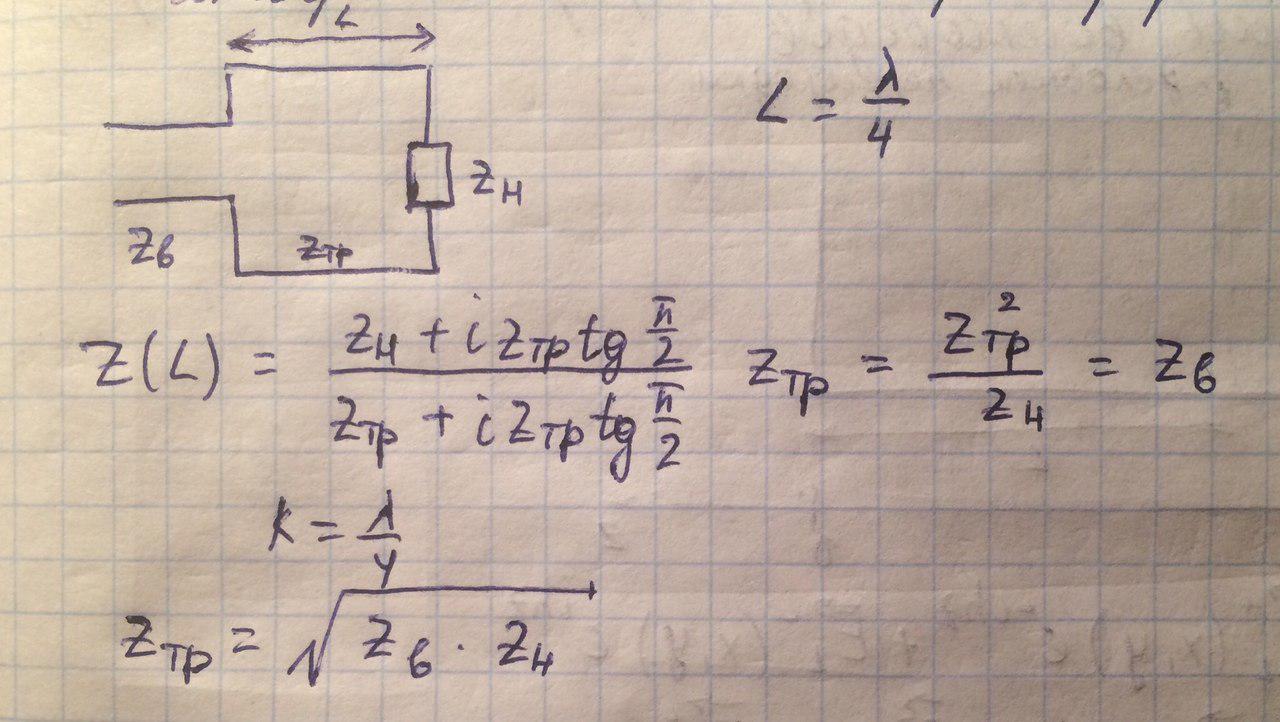 L
L = λ/4
Zн
Zв
Zтр
Z(L) = (Zн + i Zтр tg π/2)/(Zтр + i Zтр tg π/2) Zтр = Zтр²/Zн = Zв
K = λ/4
Zтр = √(Zв · Zн)